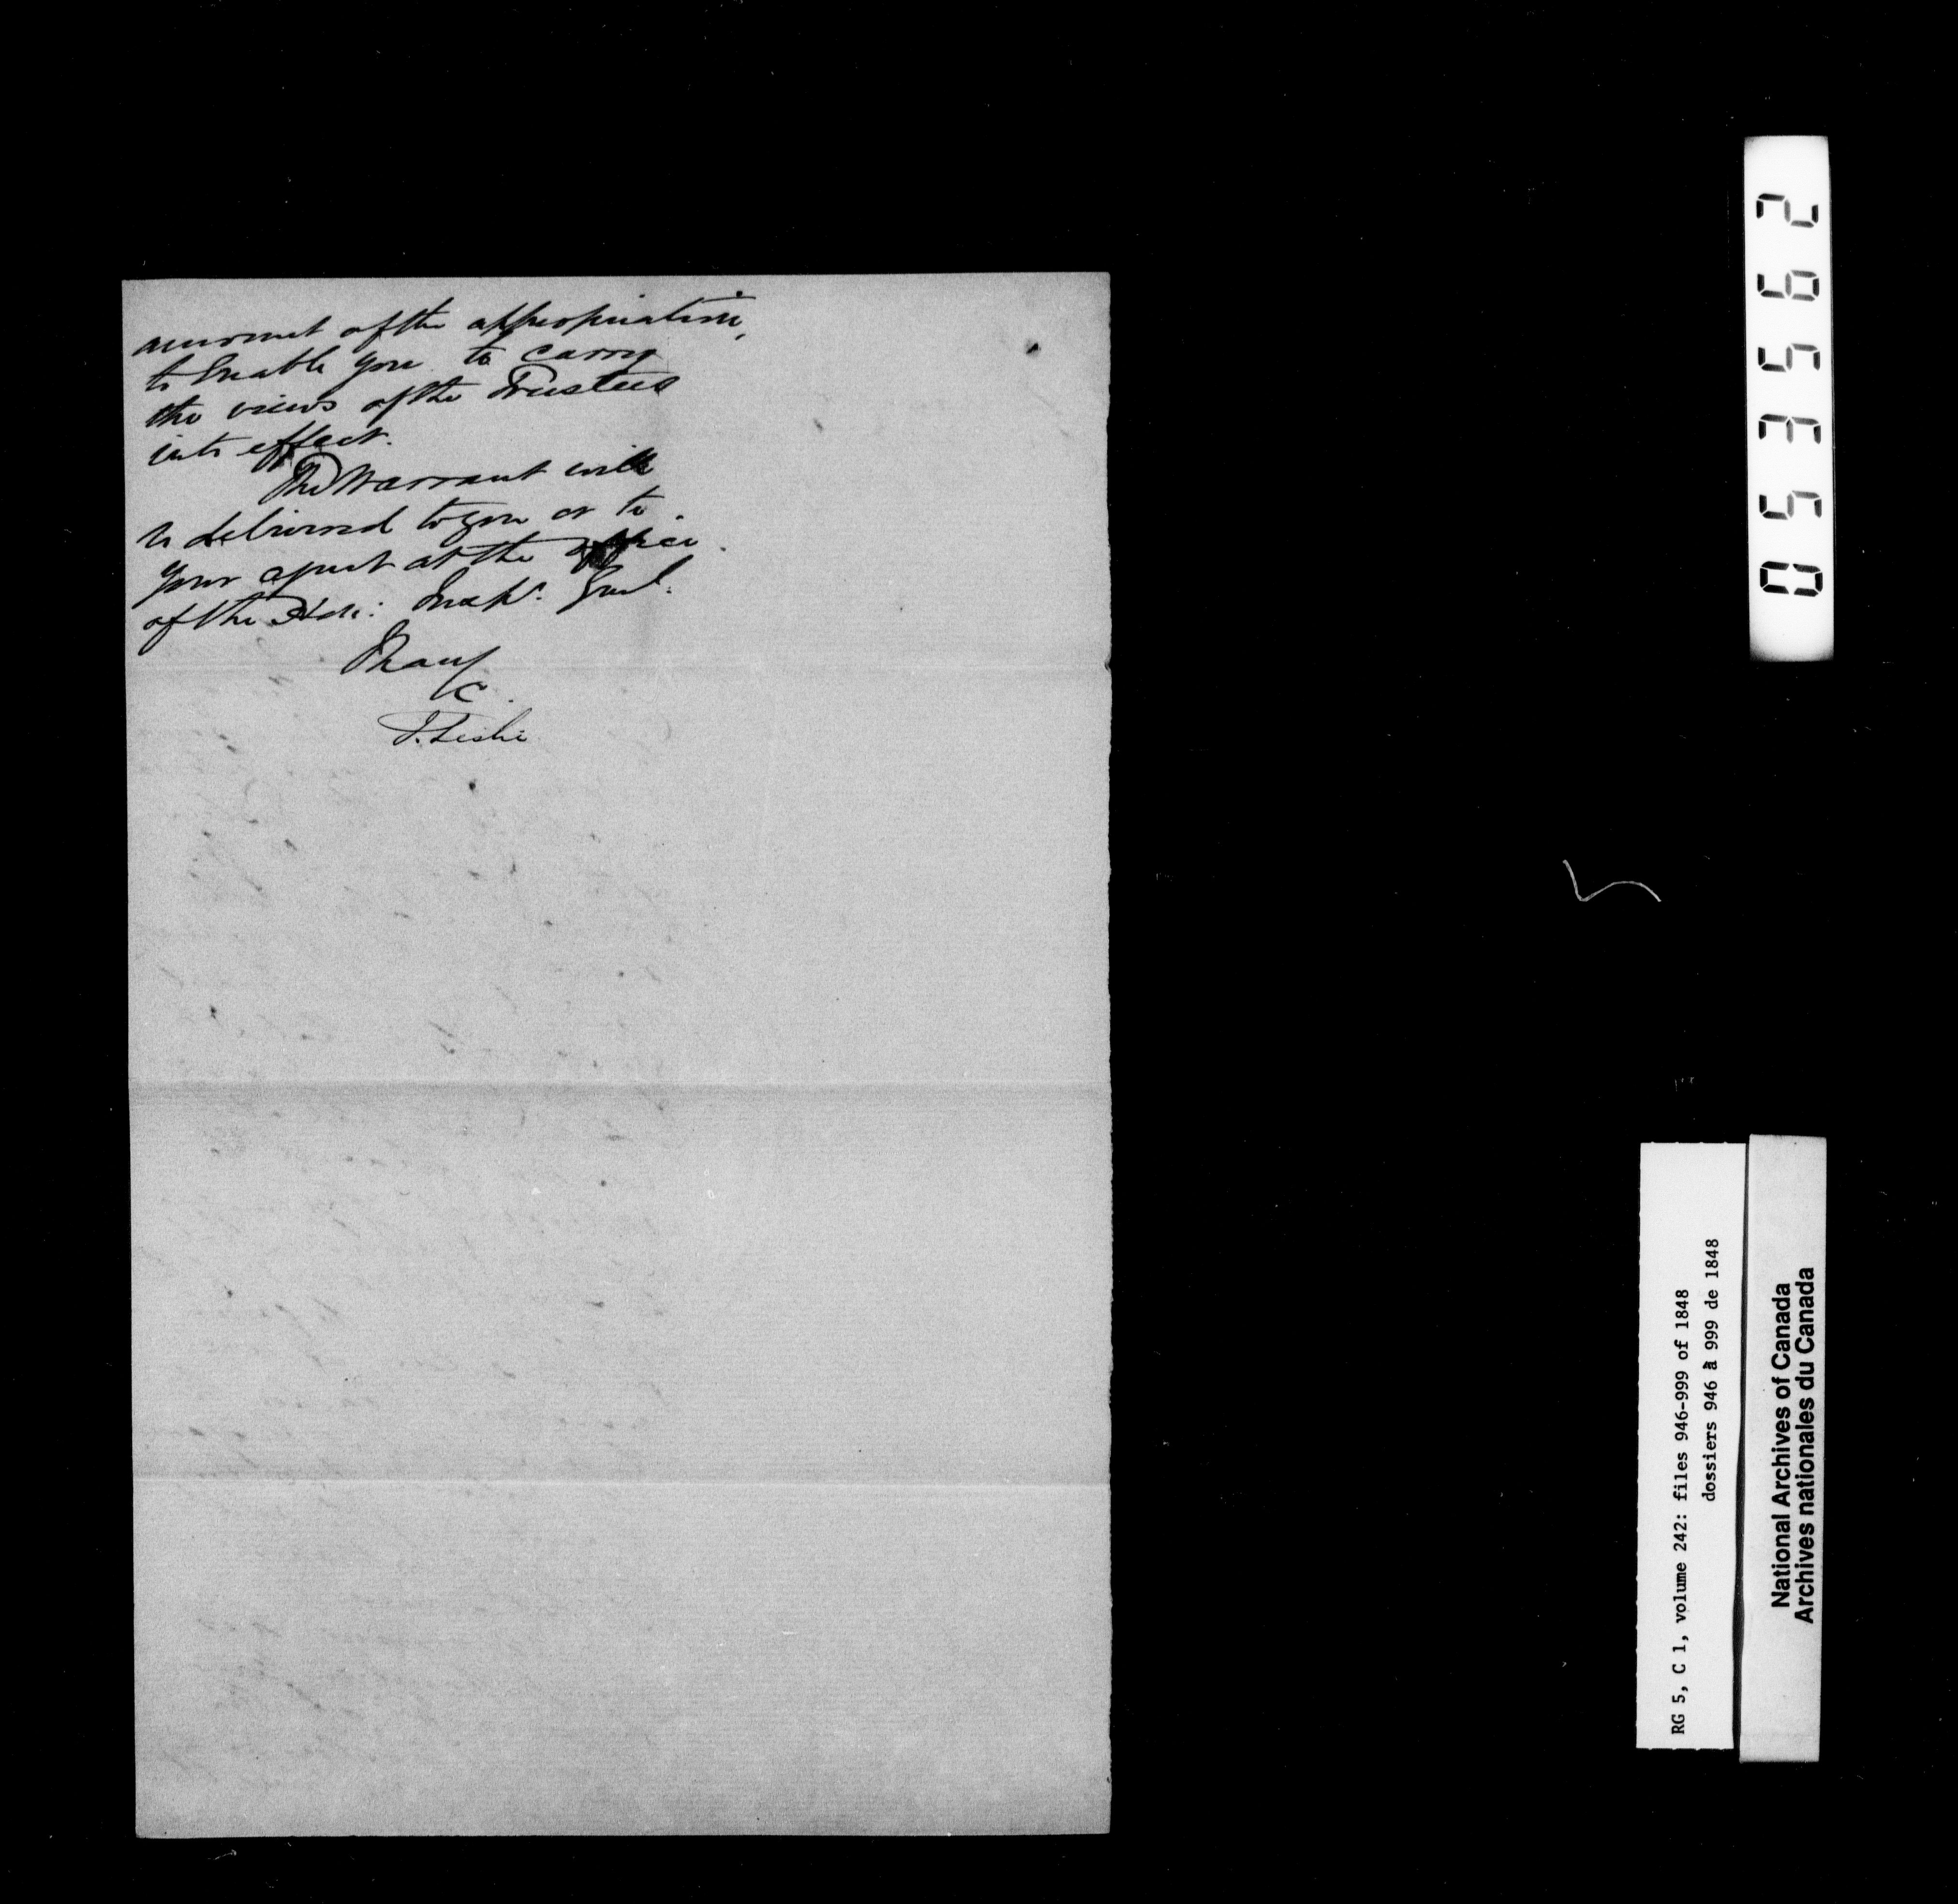 amount of the appropriation,
to Enable you to carry
the views of the Trustees
into effect.
The Warrant will
be delivered to you or to
your agent at the office
of the Hon: Insp^r. Genl.
I have
&c.
J. Leslie
053562
RG 5, C 1, volume 242: files 946-999 of 1848
dossiers 946 à 999 de 1848
National Archives of Canada
Archives nationales du Canada